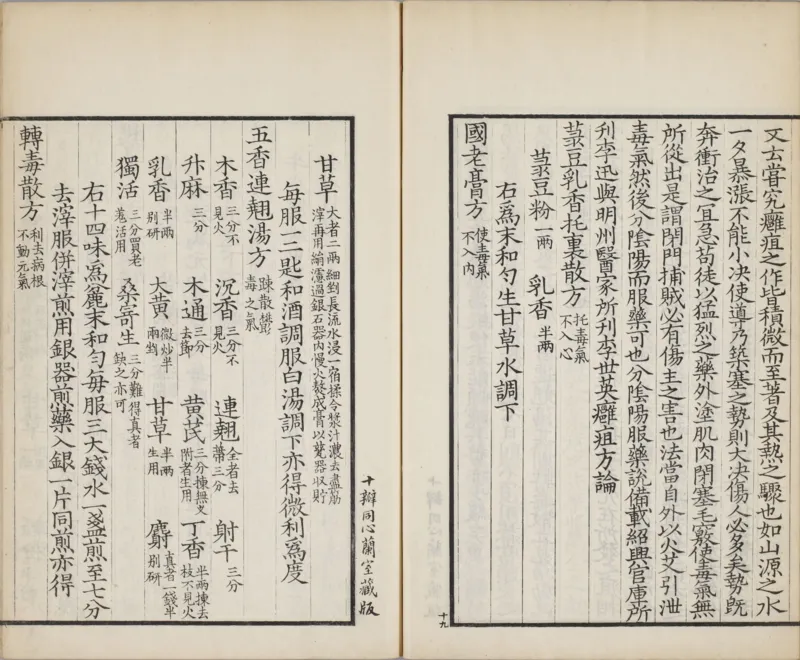 又云嘗究癰疽之作皆積微而至著及其熱之驟也如山源之水
一夕暴漲不能小决使導乃築塞之勢則大决傷人必多矣勢既
奔衝治之宜急苟徒以猛烈之藥外塗肌肉閉塞毛竅使毒氣無
所從出是謂閉門捕賊必有傷主之害也法當自外以火艾引泄
毒氣然後分陰陽而服藥可也分陰陽服藥說備載紹興官庫所
刋李迅與明州醫家所刋李世英癰疽方論
菉豆乳香托裏散方 托毒氣不入心
菉豆粉 一兩 乳香 半兩
右為末和勻生甘草水調下
國老膏方 使毒氣不入内
十九
十瓣同心蘭室藏版
甘草 大者二兩細剉長流水浸一宿揉令漿汁濃去盡筋滓再用絹濾過銀石器内慢火熬成膏以甆器收貯
每服一二匙和酒調服白湯調下亦得微利為度
五香連翹湯方 踈散鬱毒之氣
木香 三分不見火 沉香 三分不見火 連翹 全者去蔕三分 射干 三分
升麻 三分 木通 三分去節 黄芪 三分揀無叉附者生用 丁香 半兩揀去枝不見火
乳香 半兩别研 大黄 微炒半兩剉 甘草 半兩生用 麝 真者一錢半别研
獨活 三分買老羌活用 桑寄生 三分難得真者缺之亦可
右十四味為麄末和勻每服三大錢水一盞煎至七分
去滓服併滓煎用銀器煎藥入銀一片同煎亦得
轉毒散方 利去病根不動元氣